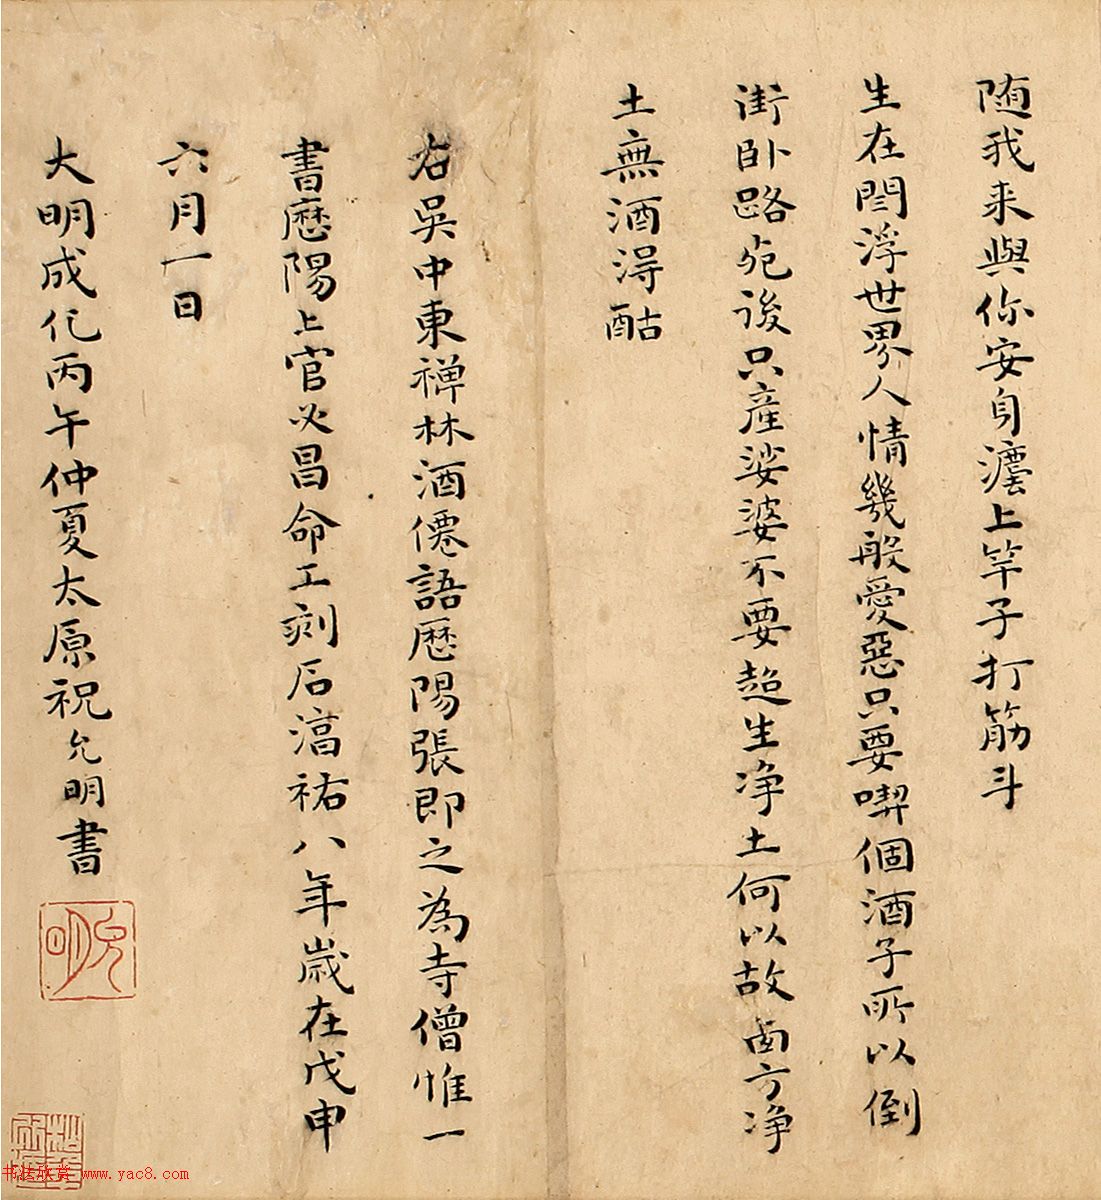 随我来與你安身瀍上竿子打筋斗
生在閻浮世界人情幾般愛惡只要喫個酒子所以倒
街卧路死後只產娑婆不要超生净土何以故西方净
土無酒得酤
右吳中東禅林酒僊語歷陽張即之為寺僧惟一
書歷陽上官必昌命工刻石淳祐八年歲在戊申
六月一日
大明成化丙午仲夏太原祝允明書
允明
书法欣赏 www.yac8.com